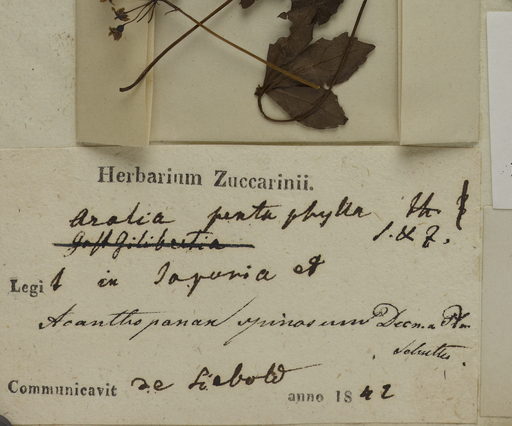 Herbarium Zuccarinii.
Aralia pentaphylla Th.
S. & Z.
Gilibertia
Legit in Japonia et
Acanthopanax spinosum Decne. & Pl.
Communicavit de Siebold
anno 1842